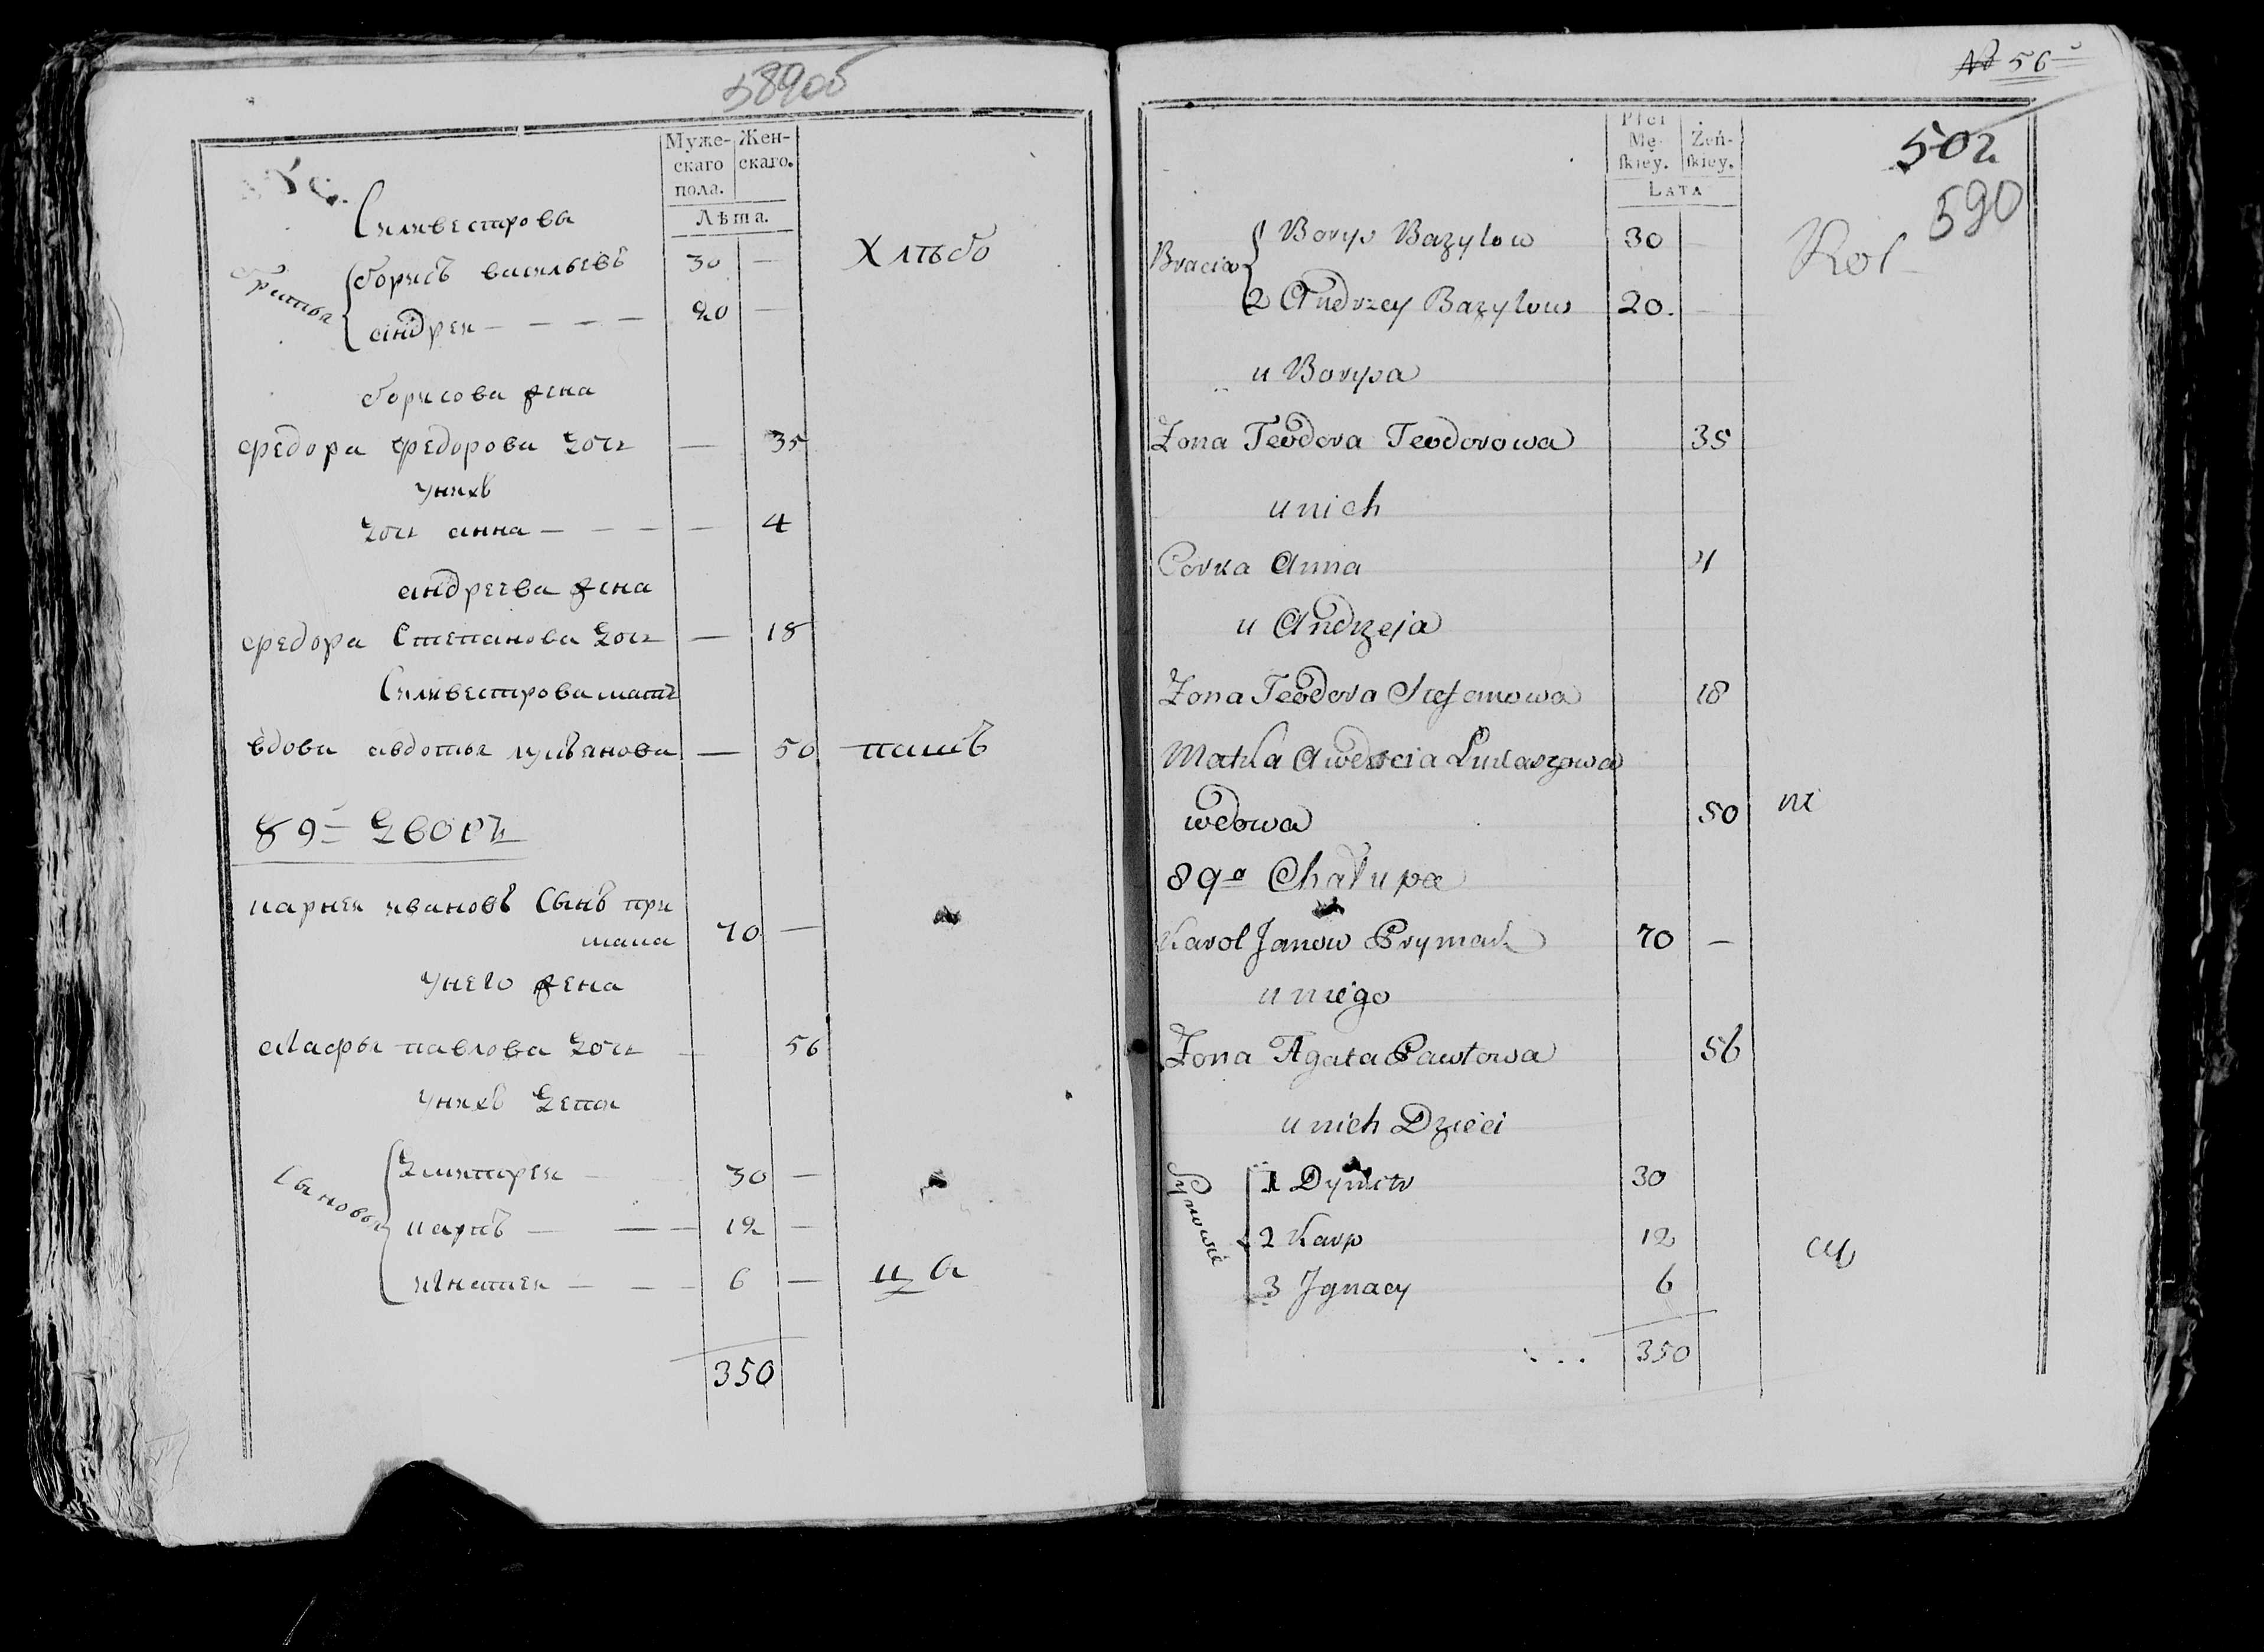 589об
Муже-
скаго
пола.
Жен-
скаго.
Лѣта.
Силивестрова
братья
борисъ васильевъ 30 —
андрей — — — — 20 —
Хлѣбо
борисова жена
федора федорова дочь — 35
у нихъ
дочь анна — — — — 4
андреева жена
федора Степанова дочь — 18
Силивестрова мать
вдова авдотья лукьянова — 50 пашъ
89й дворъ
карней ивановъ Сынъ при
мака 70 —
у него жена
агафья павлова дочь — 56
у нихъ дети
Сыновья
дмитрей — 30 —
карпъ — — — 12 —
игнатей — — — 6 — ца
350
№ 56
502
590
Płci
Mę-
skiey.
Żeń-
skiey.
LATA
Bracia
Borys Bazylow 30 —
2 Andrzey Bazylow 20. —
Rol
u Borysa
Zona Teodora Teodorowa 35
u nich
Corka Anna 4
u Andrzeja
Zona Teodora Stefanowa 18
Matka Awdocia Lukaszowa
wdowa 50 ni
89a Chałupa
Karol Janow Prymak 70 —
u niego
Zona Agata Pawłowa 56
u nich Dzieci
Synowie
1 Dymitr 30
2 Karp 12
3 Jgnacy 6
cy
350